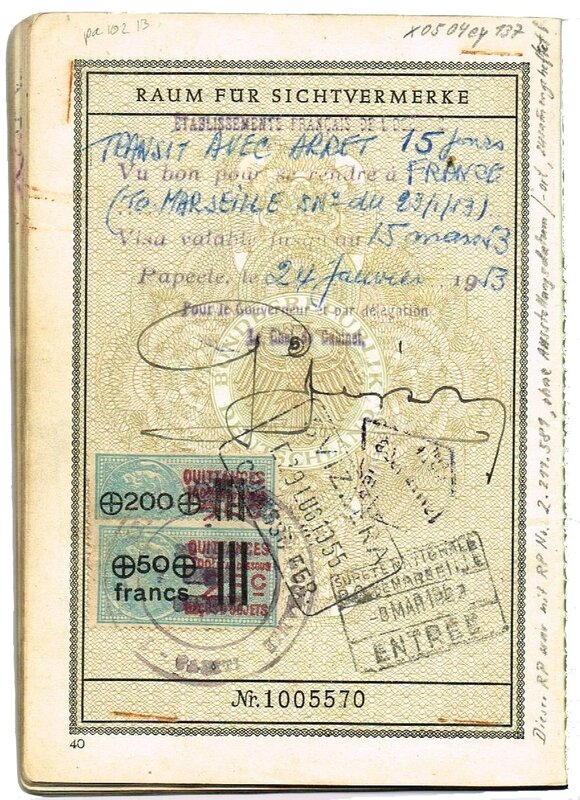 pa 102 13
x05 04 ey 137
RAUM FÜR SICHTVERMERKE
ETABLISSEMENTS FRANÇAIS DE L'OCEANIE
TRANSIT AVEC ARRET 15 jours
Vu bon pour se rendre à FRANCE
(TO MARSEILLE
Visa valable jusqu'au 15 mars 53
Papeete, le 24 Janvier 1953
Pour le Gouverneur et par délégation
Le Chef de Cabinet,
QUITTANCES
200
QUITTANCES
50
francs
OBJETS
SVIZZERA
MARSEILLE
-8 MAR 1953
ENTRÉE
Nr. 1005570
40
Dieser RP war mit RP No. 2.277.589, ohne Ausstellungsdatum/ort, zusammengeheftet!